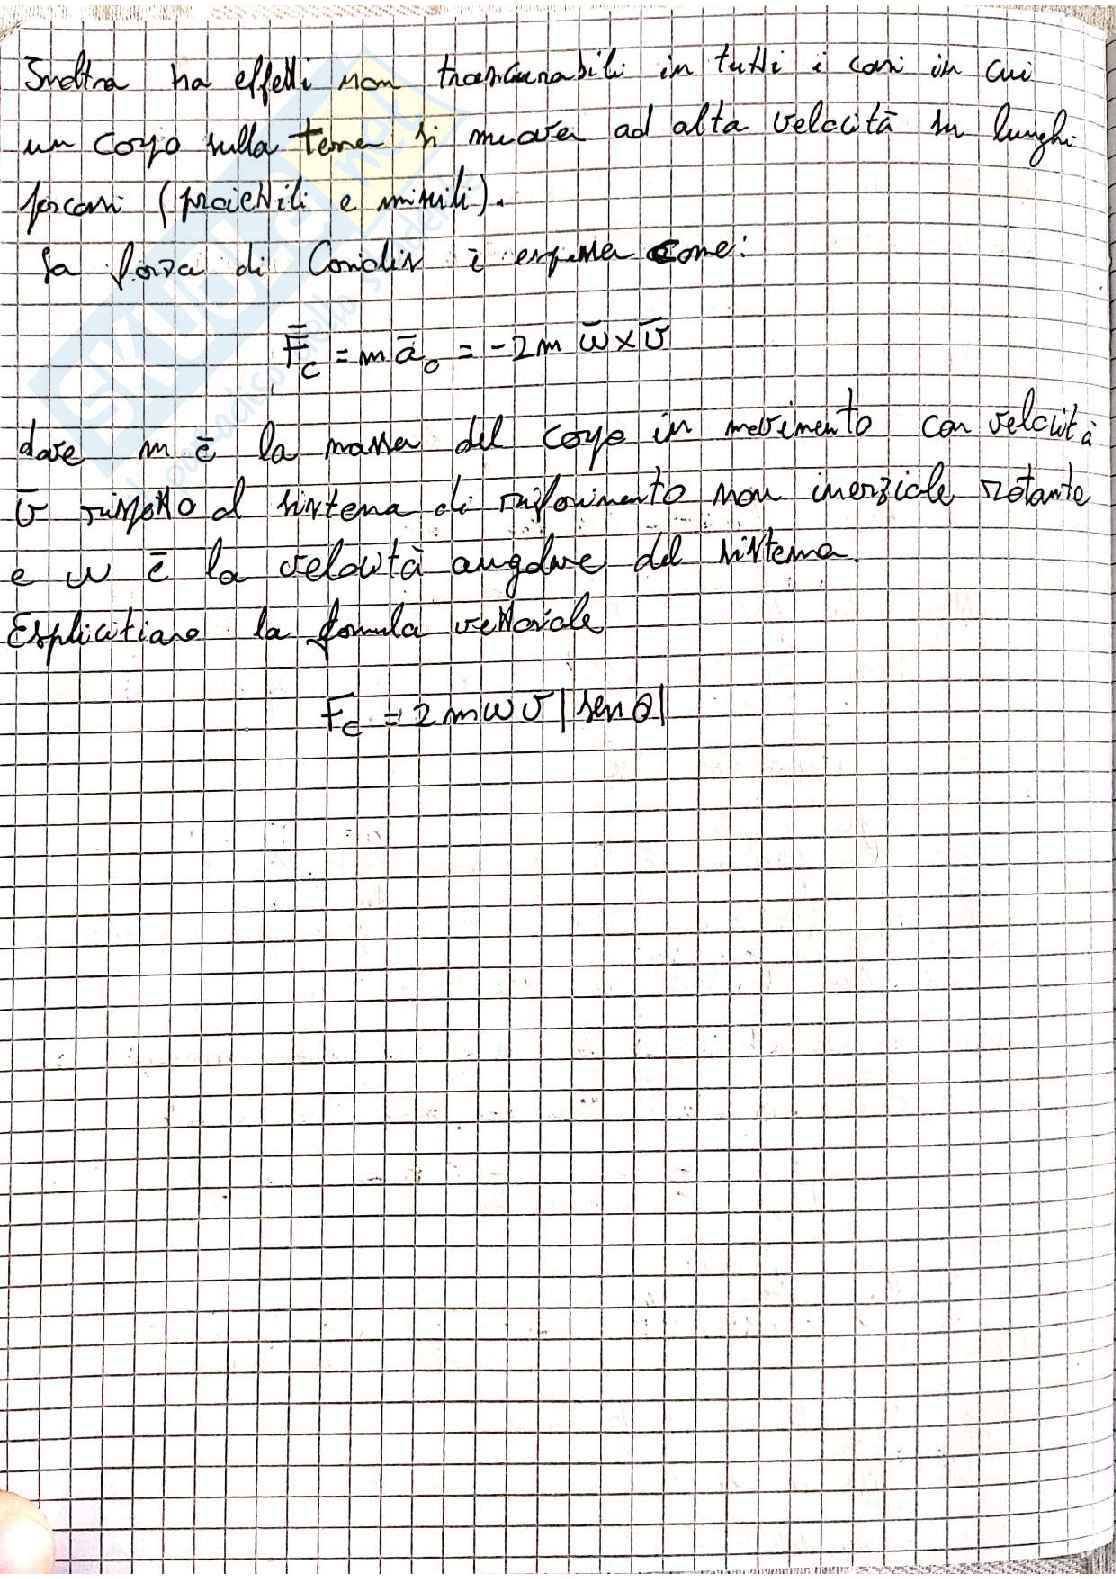 Inoltre ha effetti non trascurabili in tutti i casi in cui
un corpo sulla terra si muove ad alta velocità su lunghi
percorsi (proiettili e missili).
La forza di Coriolis è espressa come:
F̄c = m ā₀ = -2m ω̄ x v̄
dove m è la massa del corpo in movimento con velocità
v̄ rispetto al sistema di riferimento non inerziale rotante
e ω è la velocità angolare del sistema.
Esplicitiamo la formula vettoriale
Fc = 2mωv|senθ|